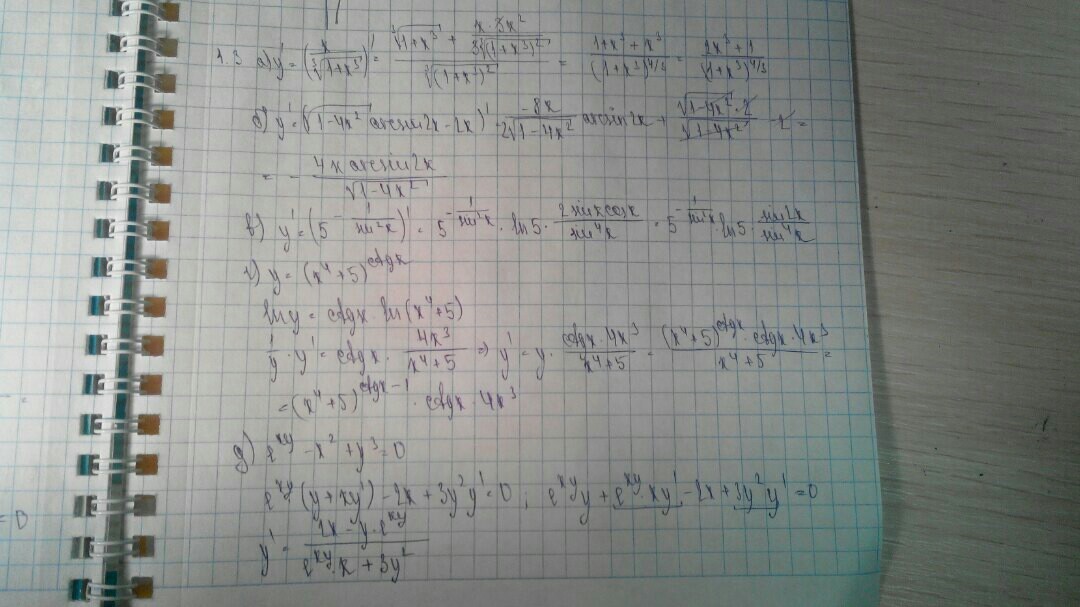 1.3 а) y' = (x/∛(1+x³))' = (∛(1+x³) + x·3x²/(3∛(1+x³)²))/∛(1+x³)² = (1+x³+x³)/(1+x³)^(4/3) = (2x³+1)/√(1+x³)^(4/3)
б) y' = (√(1-4x²) arcsin2x - 2x)' = -8x/(2√(1-4x²)) arcsin2x + √(1-4x²)·2/√(1-4x²) - 2 =
= - 4x arcsin2x/√(1-4x²)
в) y' = (5^(-1/sin²x))' = 5^(-1/sin²x) · ln5 · 2sinxcosx/sin⁴x = 5^(-1/sin²x) · ln5 · sin2x/sin⁴x
г) y = (x⁴+5)^ctgx
lny = ctgx · ln(x⁴+5)
1/y · y' = ctgx · 4x³/(x⁴+5) ⇒ y' = y · ctgx·4x³/(x⁴+5) = (x⁴+5)^ctgx · ctgx·4x³/(x⁴+5) =
= (x⁴+5)^(ctgx-1) · ctgx · 4x³
д) e^xy - x² + y³ = 0
e^xy (y+xy') - 2x + 3y²y' = 0 ; e^xy y + e^xy xy' - 2x + 3y²y' = 0
y' = (2x - y·e^xy)/(e^xy·x + 3y²)
= 0